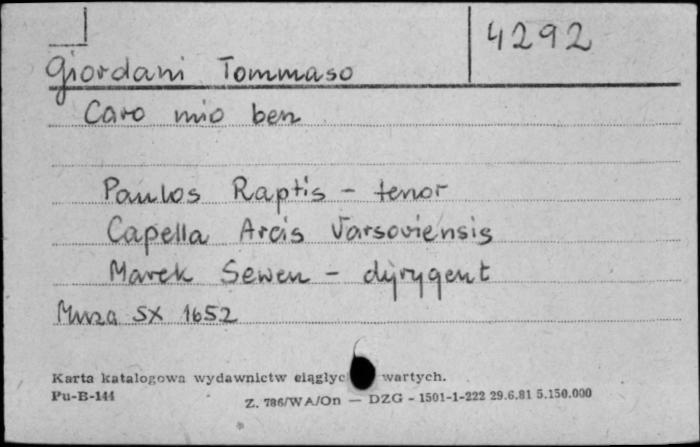 4292
Giordani Tommaso
Caro mio ben
Paulos Raptis - tenor
Capella Arcis Varsoviensis
Marek Sewen - dyrygent
Muza SX 1652
Karta katalogowa wydawnictw ciągłyc wartych.
Pu-B-144
Z. 786/WA/On — DZG - 1501-1-222 29.6.81 5.150.000